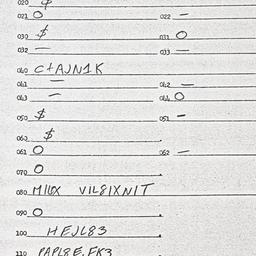 020 $
021 O 022 —
030 $ 031 O
032 — 033 —
040 C+AJN1K
041 — 042 —
043 — 044 O
050 $ 051 -
060 $
061 O 062 —
070 O
080 MILX VIL8IXNIT
090 O
100 HEJL83
110 PAPL8E.FK3